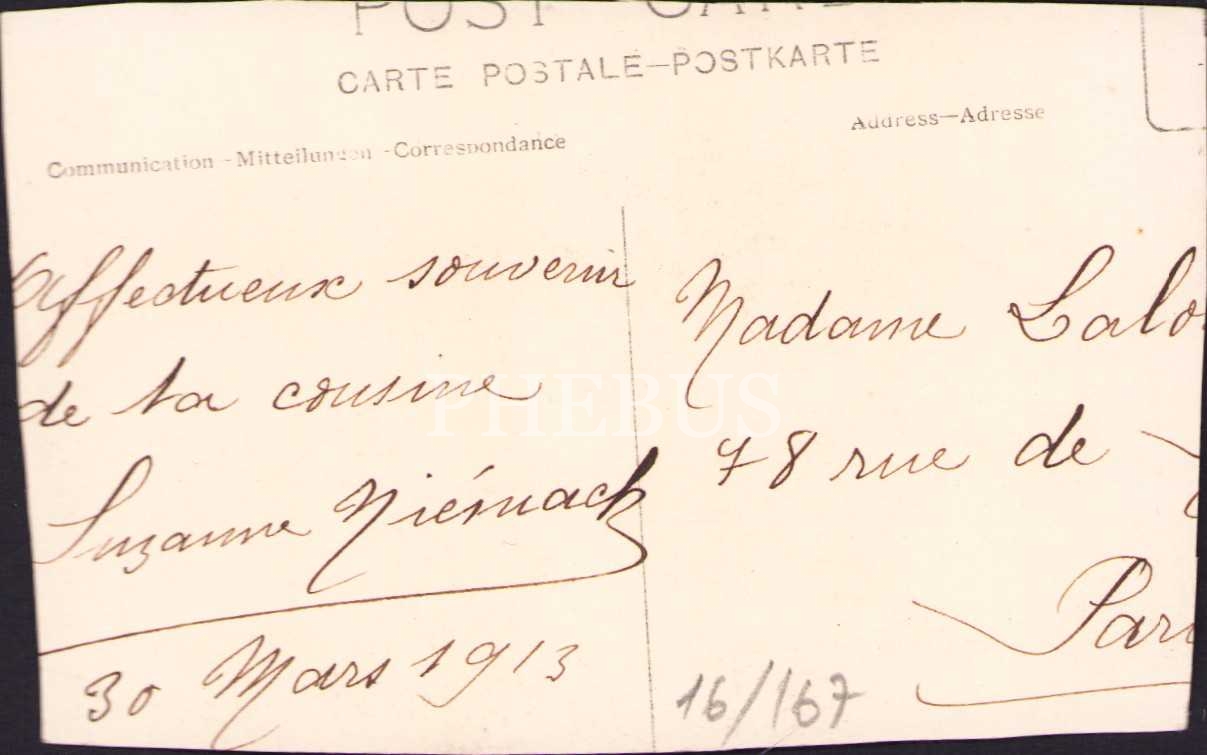 POST CARD
CARTE POSTALE—POSTKARTE
Communication - Mitteilungen - Correspondance
Address—Adresse
Affectueux souvenir
de ta cousine
Suzanne
30 Mars 1913
Madame Lalo
78 rue de
Pari
16/167
PHEBUS